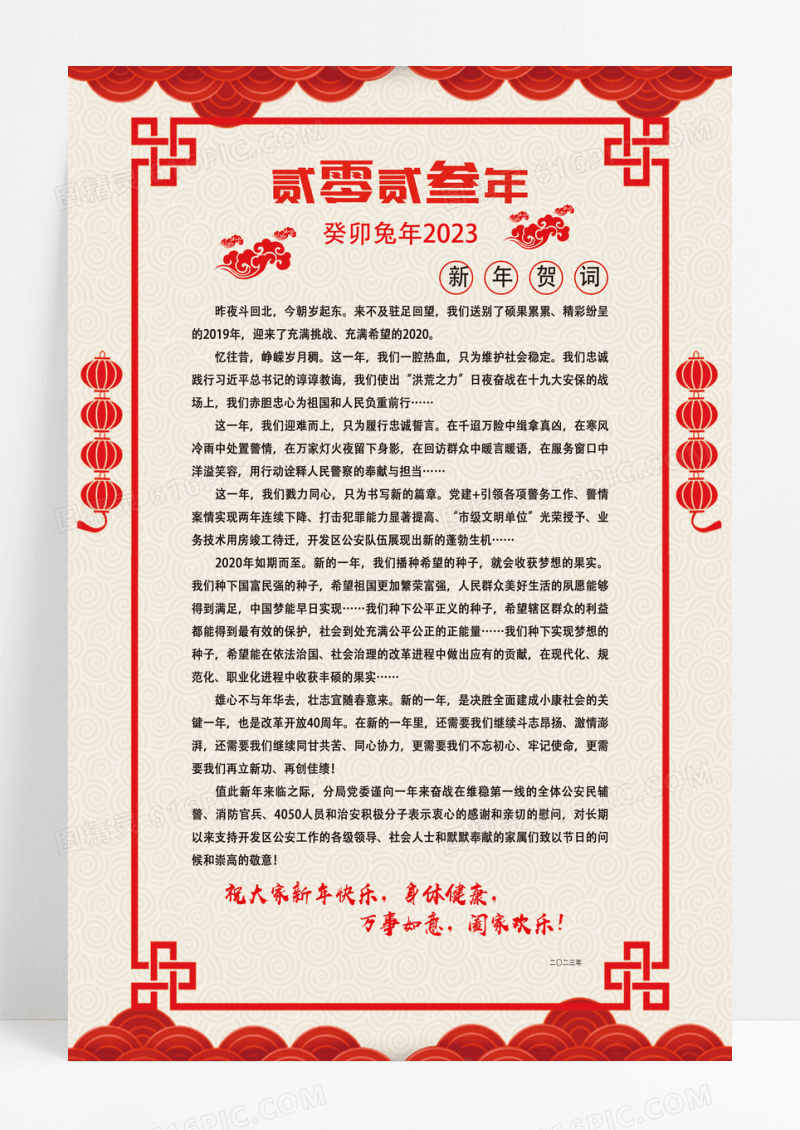 贰零贰叁年
癸卯兔年2023
新年贺词
昨夜斗回北，今朝岁起东。来不及驻足回望，我们送别了硕果累累、精彩纷呈
的2019年，迎来了充满挑战、充满希望的2020。
忆往昔，峥嵘岁月稠。这一年，我们一腔热血，只为维护社会稳定。我们忠诚
践行习近平总书记的谆谆教诲，我们使出“洪荒之力”日夜奋战在十九大安保的战
场上，我们赤胆忠心为祖国和人民负重前行……
这一年，我们迎难而上，只为履行忠诚誓言。在千迢万险中缉拿真凶，在寒风
冷雨中处置警情，在万家灯火夜留下身影，在回访群众中暖言暖语，在服务窗口中
洋溢笑容，用行动诠释人民警察的奉献与担当……
这一年，我们戮力同心，只为书写新的篇章。党建+引领各项警务工作、警情
案情实现两年连续下降、打击犯罪能力显著提高、“市级文明单位”光荣授予、业
务技术用房竣工待迁，开发区公安队伍展现出新的蓬勃生机……
2020年如期而至。新的一年，我们播种希望的种子，就会收获梦想的果实。
我们种下国富民强的种子，希望祖国更加繁荣富强，人民群众美好生活的夙愿能够
得到满足，中国梦能早日实现……我们种下公平正义的种子，希望辖区群众的利益
都能得到最有效的保护，社会到处充满公平公正的正能量……我们种下实现梦想的
种子，希望能在依法治国、社会治理的改革进程中做出应有的贡献，在现代化、规
范化、职业化进程中收获丰硕的果实……
雄心不与年华去，壮志宜随春意来。新的一年，是决胜全面建成小康社会的关
键一年，也是改革开放40周年。在新的一年里，还需要我们继续斗志昂扬、激情澎
湃，还需要我们继续同甘共苦、同心协力，更需要我们不忘初心、牢记使命，更需
要我们再立新功、再创佳绩！
值此新年来临之际，分局党委谨向一年来奋战在维稳第一线的全体公安民辅
警、消防官兵、4050人员和治安积极分子表示衷心的感谢和亲切的慰问，对长期
以来支持开发区公安工作的各级领导、社会人士和默默奉献的家属们致以节日的问
候和崇高的敬意！
祝大家新年快乐，身体健康，
万事如意，阖家欢乐！
二〇二三年